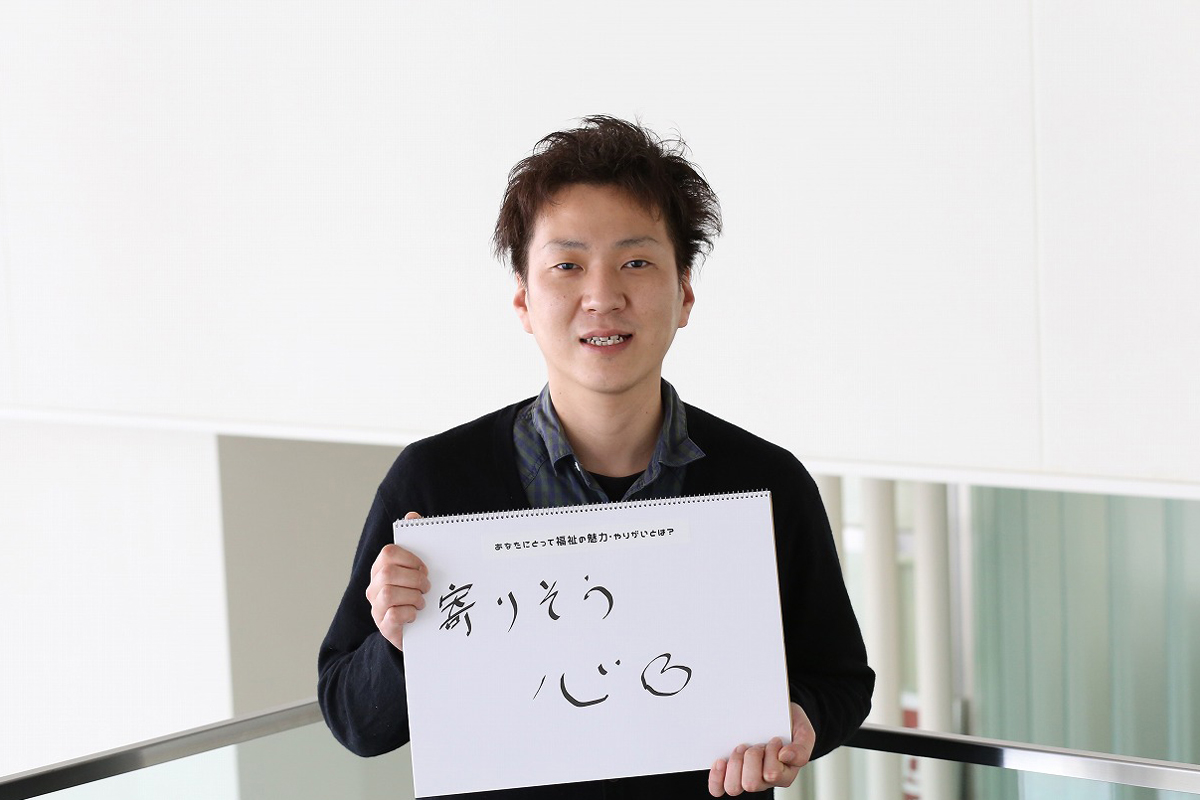 あなたにとって福祉の魅力・やりがいとは?
寄りそう
心